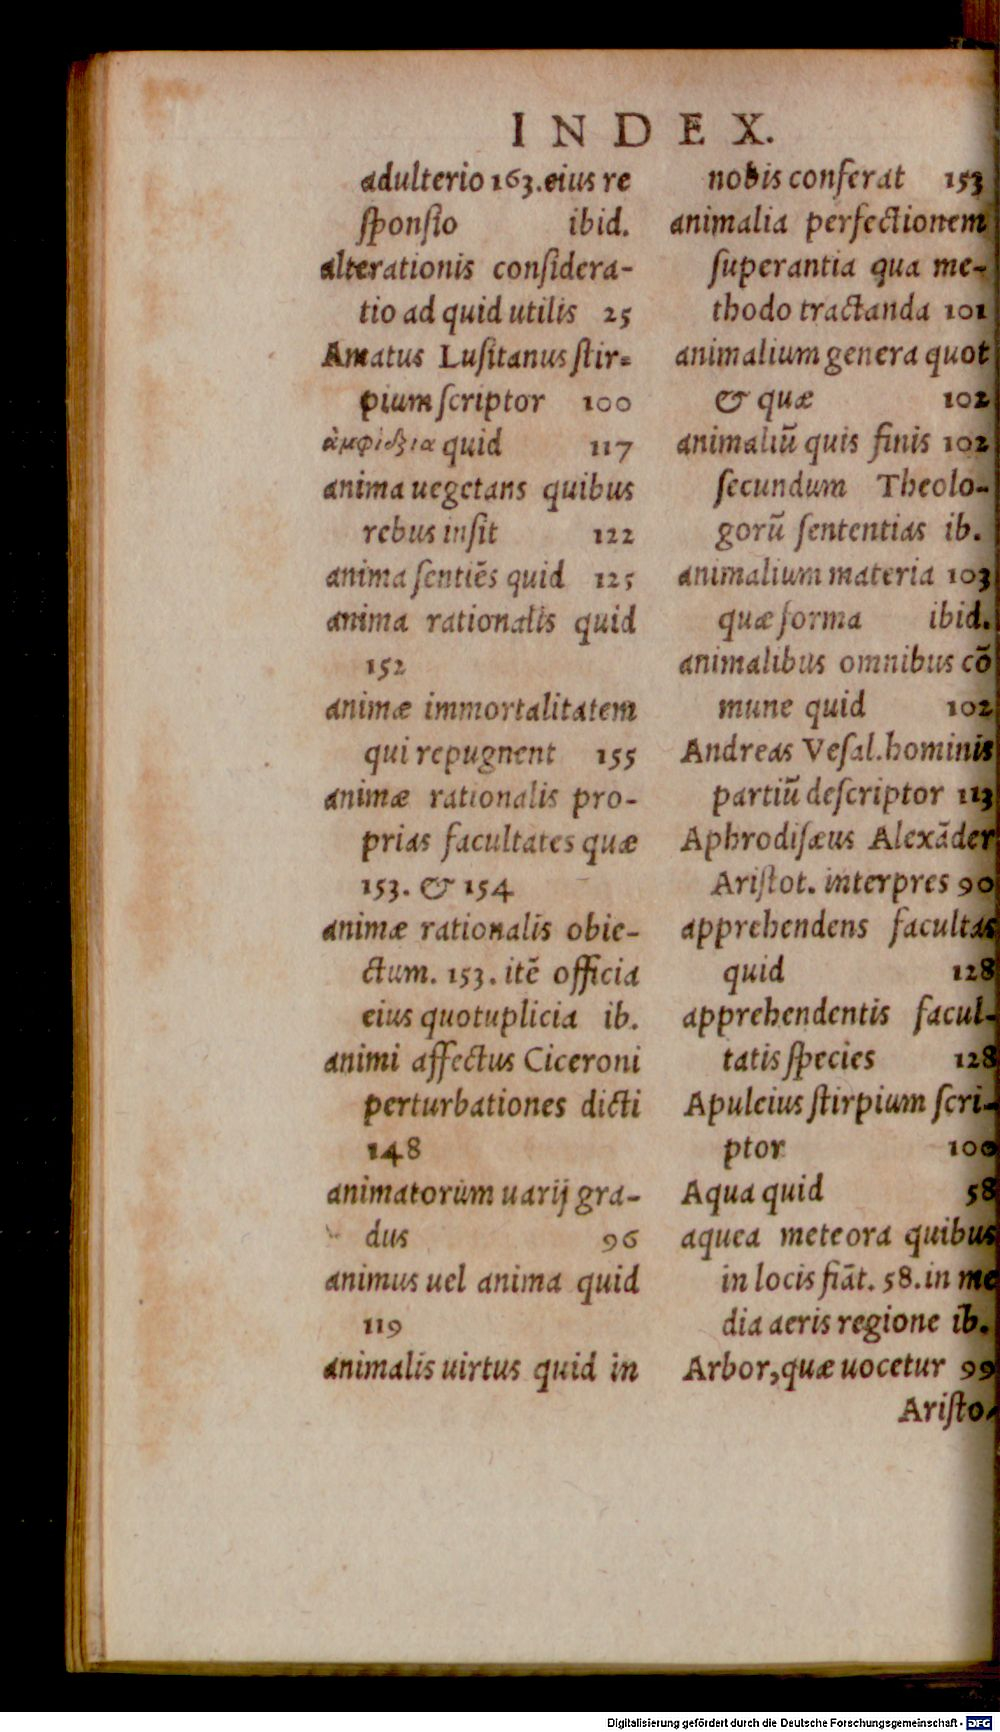 INDEX.
adulterio 163. eius re
sponsio ibid.
alterationis considera-
tio ad quid utilis 25
Amatus Lusitanus stir=
pium scriptor 100
quid 117
anima uegetans quibus
rebus insit 122
anima sentiẽs quid 125
anima rationalis quid
152
animæ immortalitatem
qui repugnent 155
animæ rationalis pro-
prias facultates quæ
153. & 154
animæ rationalis obie-
ctum. 153. itẽ officia
eius quotuplicia ib.
animi affectus Ciceroni
perturbationes dicti
148
animatorum uarij gra-
dus 96
animus uel anima quid
119
animalis uirtus quid in
nobis conferat 153
animalia perfectionem
superantia qua me-
thodo tractanda 101
animalium genera quot
& quæ 102
animaliũ quis finis 102
secundum Theolo-
gorũ sententias ib.
animalium materia 103
quæ forma ibid.
animalibus omnibus cõ
mune quid 102
Andreas Vesal. hominis
partiũ descriptor 113
Aphrodisæus Alexãder
Aristot. interpres 90
apprehendens facultas
quid 128
apprehendentis facul-
tatis species 128
Apuleius stirpium scri-
ptor 100
Aqua quid 58
aquea meteora quibus
in locis fiãt. 58. in me
dia aeris regione ib.
Arbor, quæ uocetur 99
Aristo-
Digitalisierung gefördert durch die Deutsche Forschungsgemeinschaft - DFG